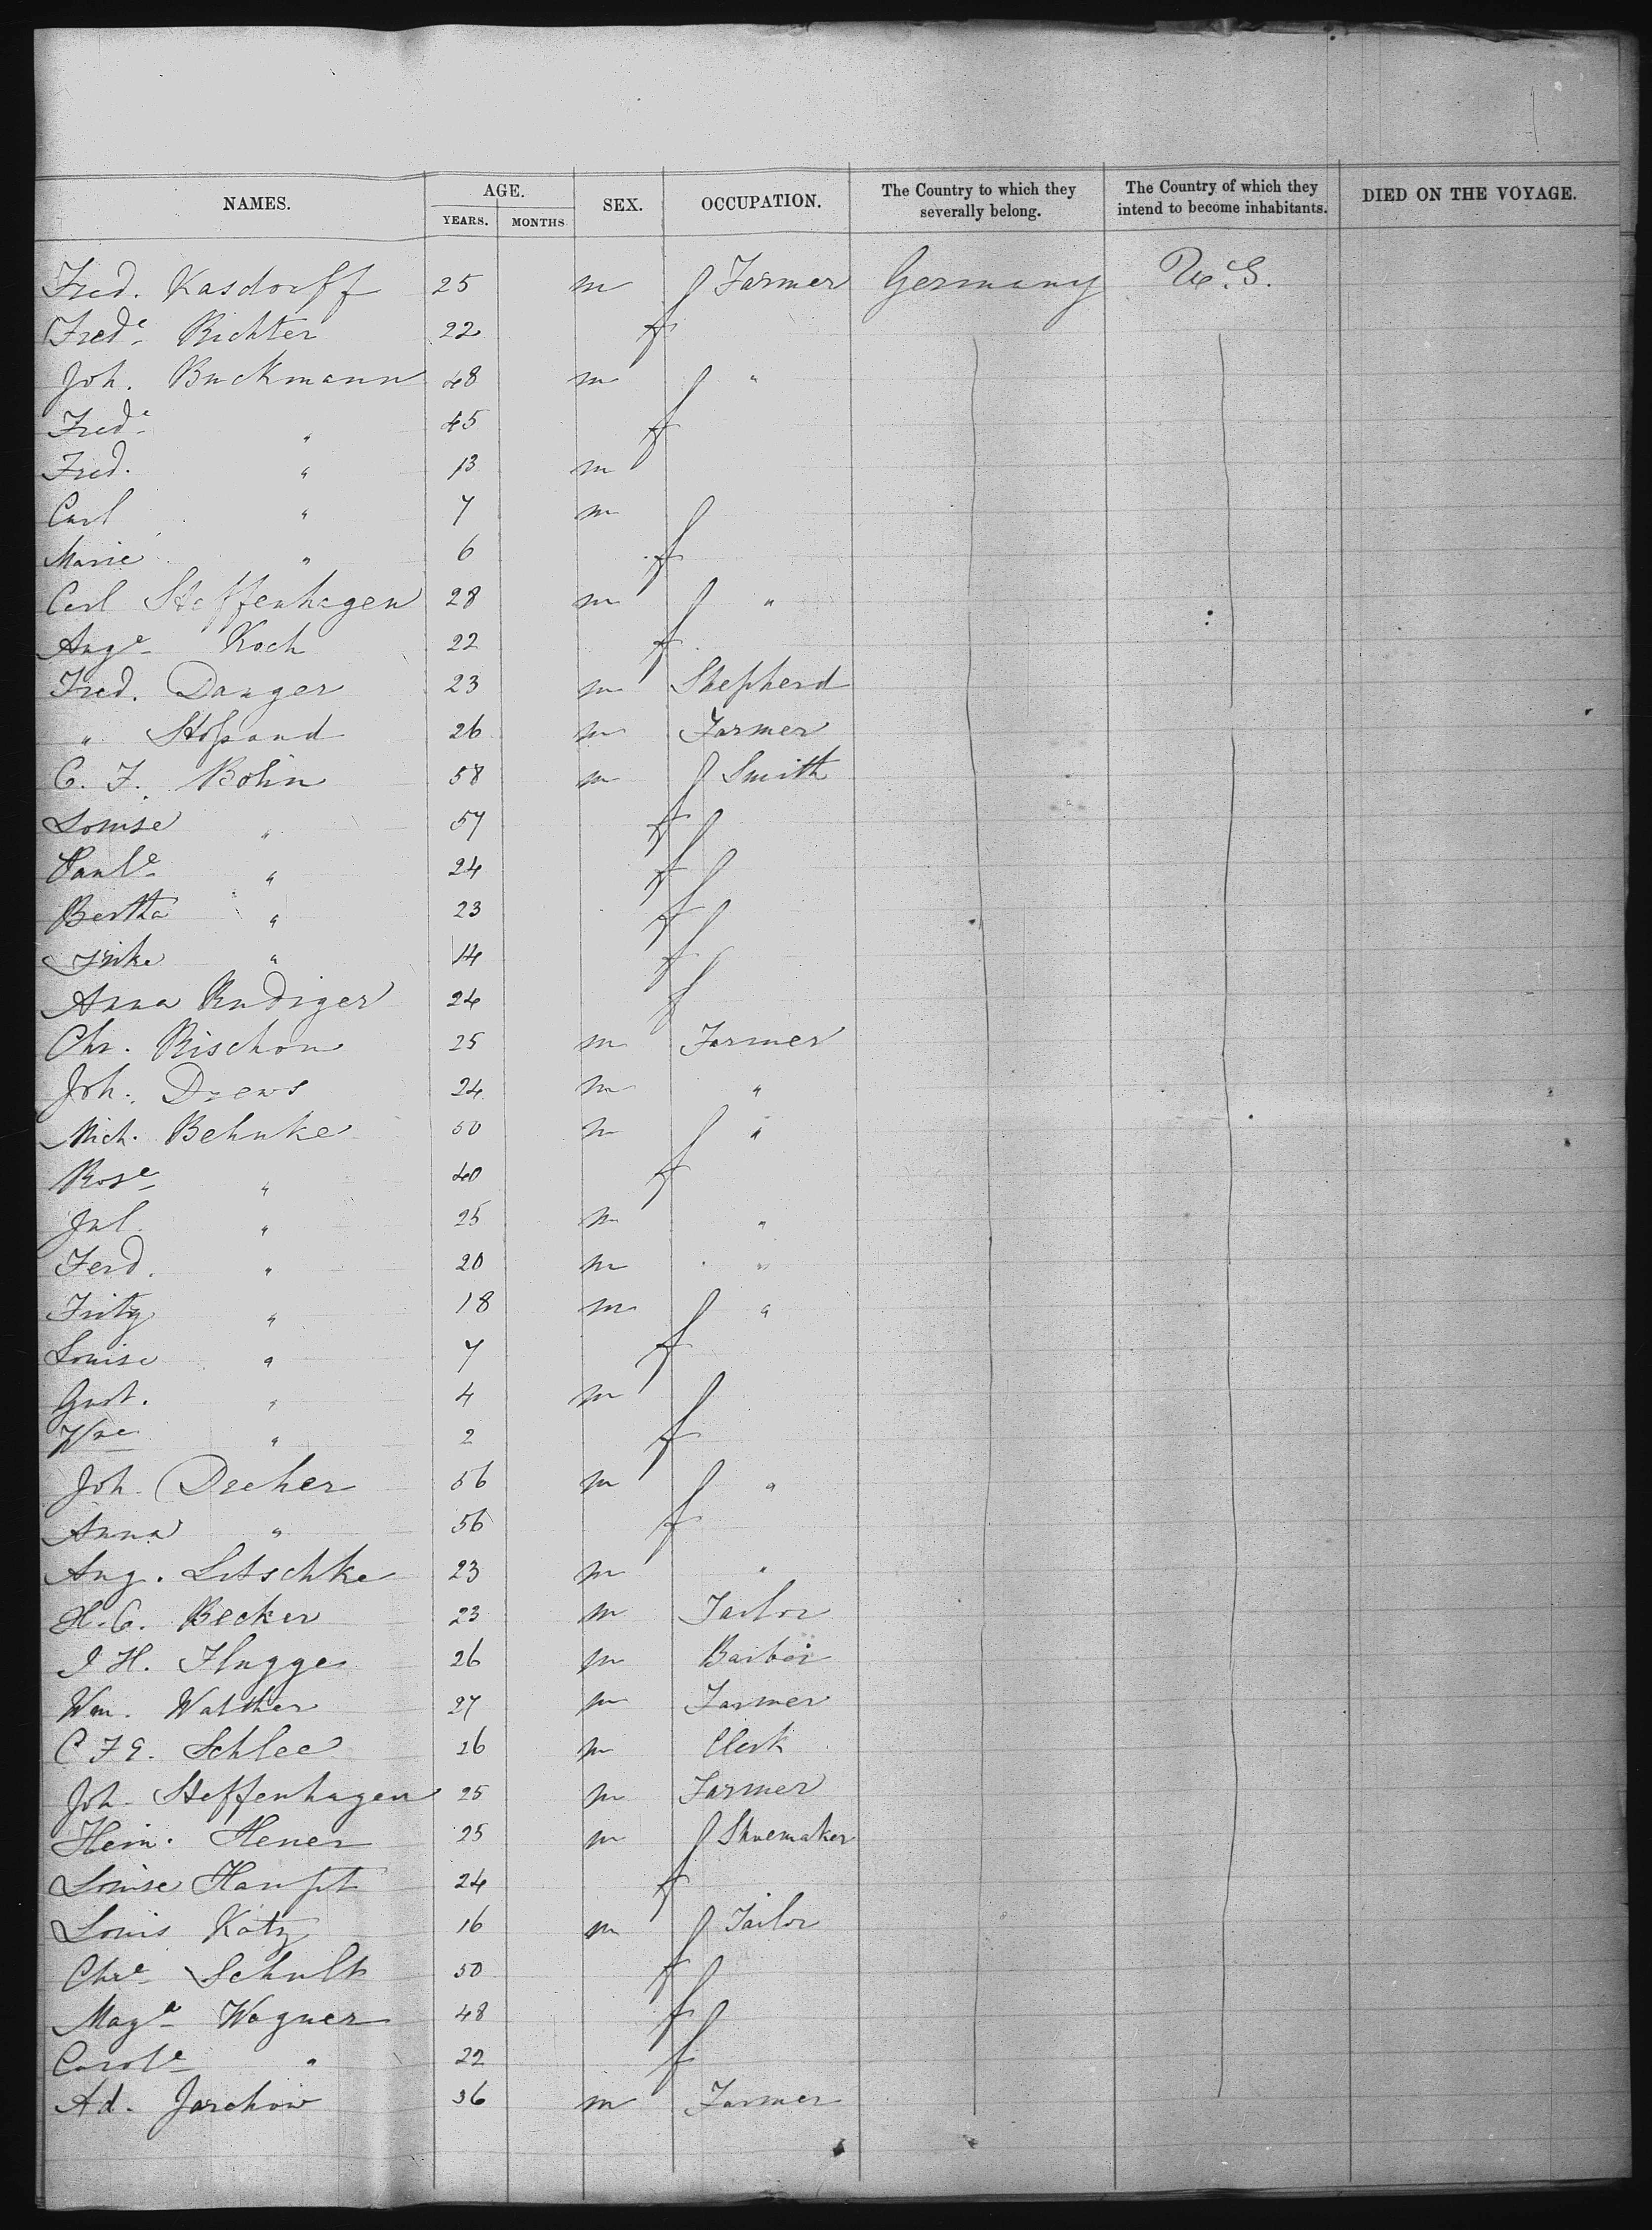 NAMES. AGE. SEX. OCCUPATION. The Country to which they severally belong. The Country of which they intend to become inhabitants. DIED ON THE VOYAGE.
YEARS. MONTHS
Fred. Kasdorff 25 m Farmer Germany U.S.
Fredᵉ Richter 22 f
Joh. Buckmann 48 m "
Fredᵉ " 45 f
Fred. " 13 m
Carl " 7 m
Marie " 6 f
Carl Steffenhagen 28 m "
Augᵉ Koch 22 f
Fred. Danger 23 m Shepherd
" 26 m Farmer
C. F. Bohn 58 m Smith
Louise " 57 f
Paulᵉ " 24 f
Bertha " 23 f
" 14 f
Anna Rudiger 24 f
Chr. Rischow 25 m Farmer
Joh. Drews 24 m "
Mich. Behnke 50 m "
Rosᵉ " 40 f
Jul. " 25 m "
Ferd. " 20 m "
Fritz " 18 m "
Louise " 7 f
Gust. " 4 m
Wᵐᵉ " 2 f
Joh. Dreher 56 m "
Anna " 56 f
Aug. Litschke 23 m "
H. C. Becker 23 m Tailor
J H. Flugge 26 m Barber
Wm. Walther 27 m Farmer
C F E. Schlee 26 m Clerk
Joh. Steffenhagen 25 m Farmer
Hein. Hener 25 m Shoemaker
Louise Haupt 24 f
Louis Katz 16 m Tailor
Chrᵉ Schult 50 f
Magᵃ Wagner 48 f
Carolᵉ " 22 f
Ad. Jarchow 36 m Farmer